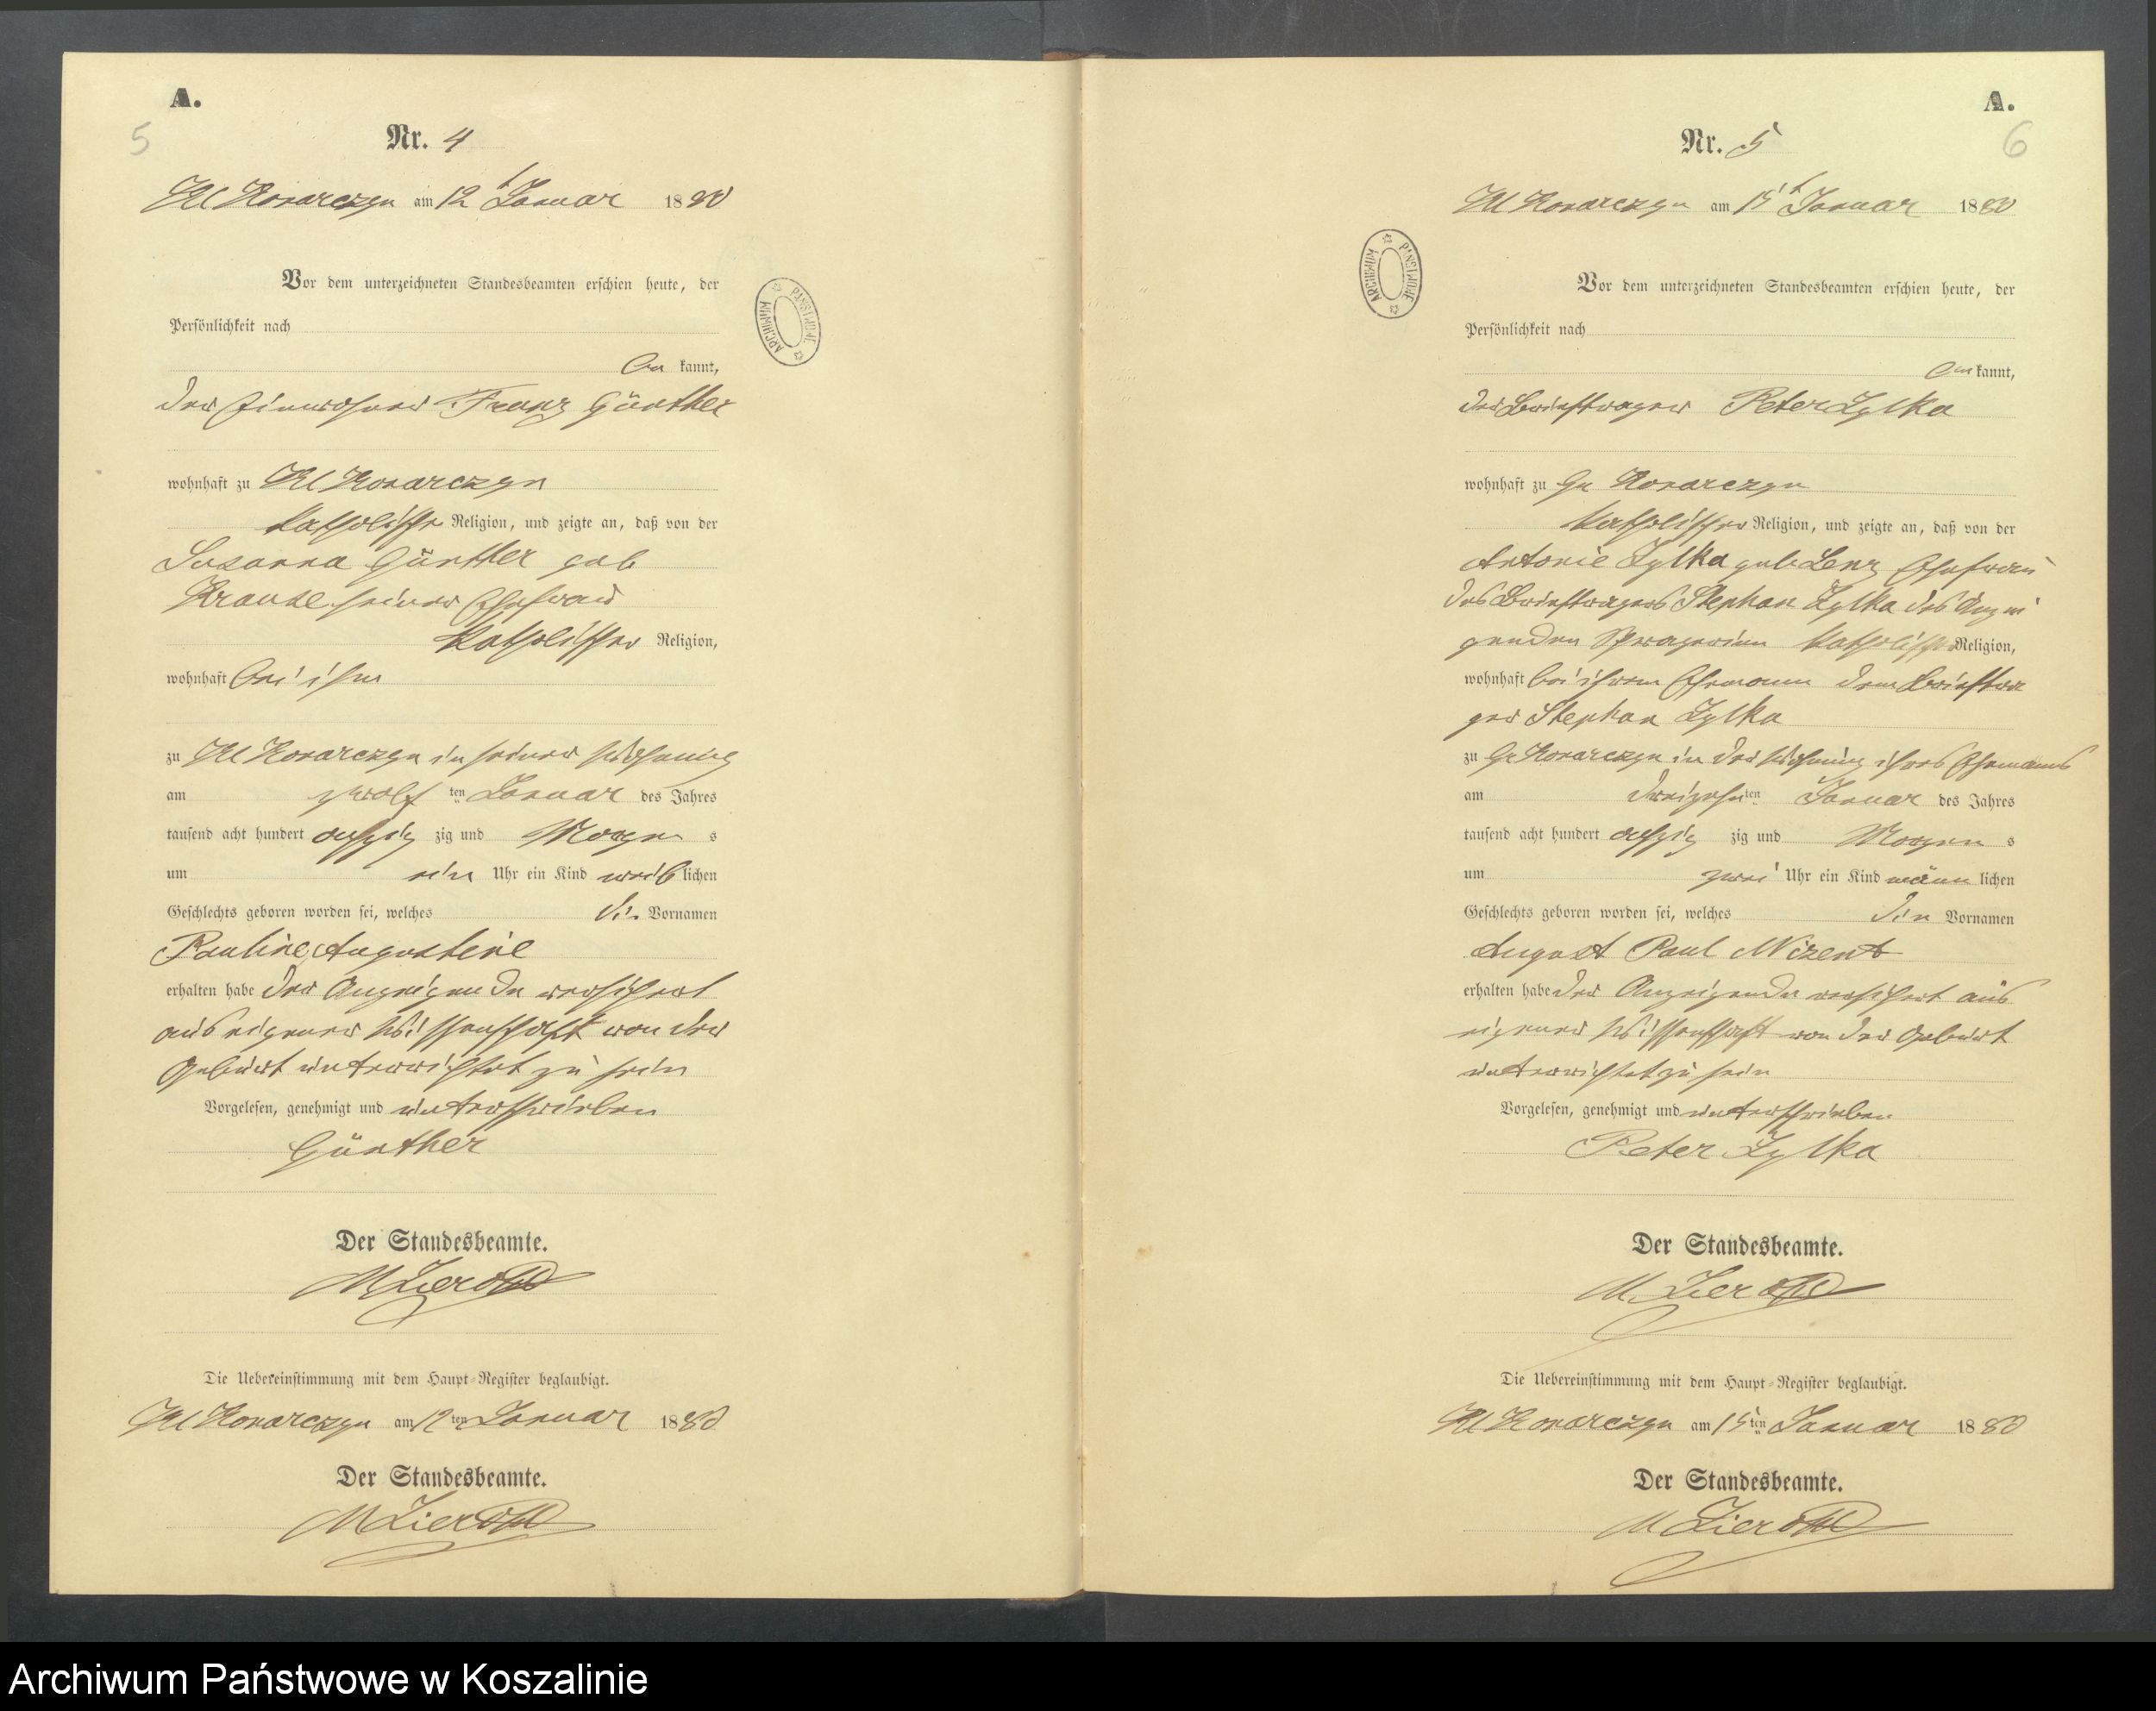 A.
5
Nr. 4
Kl Konarczyn am 12 t Januar 1880
Vor dem unterzeichneten Standesbeamten erschien heute, der
Persönlichkeit nach
be kannt,
der Einwohner Franz Günther
wohnhaft zu Kl Konarczyn
katholischer Religion, und zeigte an, daß von der
Susanna Günther geb
Krause seiner Ehefrau
katholischer Religion,
wohnhaft bei ihm
zu Kl Konarczyn in seiner Wohnung
am zwölf ten Januar des Jahres
tausend acht hundert achtzig zig und Morgen s
um ein Uhr ein Kind weib lichen
Geschlechts geboren worden sei, welches die Vornamen
Pauline Augustine
erhalten habe der Anzeigende versichert
aus eigener Wissenschaft von der
Geburt unterrichtet zu sein
Vorgelesen, genehmigt und unterschrieben
Günther
Der Standesbeamte.
M
Die Uebereinstimmung mit dem Haupt-Register beglaubigt.
Kl Konarczyn am 12 ten Januar 1880
Der Standesbeamte.
M
ARCHIWUM PAŃSTWOWE
A.
6
Nr. 5
Kl Konarczyn am 15 t Januar 1880
Vor dem unterzeichneten Standesbeamten erschien heute, der
Persönlichkeit nach
be kannt,
der Briefträger Peter Zylka
wohnhaft zu Gr Konarczyn
katholischer Religion, und zeigte an, daß von der
Antonie Zylka geb Lenz Ehefrau
des Briefträgers Stephan Zylka des Anzei
genden katholischer Religion,
wohnhaft bei ihrem Ehemann dem Briefträ
ger Stephan Zylka
zu Gr Konarczyn in der Wohnung ihres Ehemanns
am dreizehn ten Januar des Jahres
tausend acht hundert achtzig zig und Morgen s
um zwei Uhr ein Kind männ lichen
Geschlechts geboren worden sei, welches die Vornamen
August Paul
erhalten habe der Anzeigende versichert aus
eigener Wissenschaft von der Geburt
unterrichtet zu sein
Vorgelesen, genehmigt und unterschrieben
Peter Zylka
Der Standesbeamte.
M
Die Uebereinstimmung mit dem Haupt-Register beglaubigt.
Kl Konarczyn am 15 ten Januar 1880
Der Standesbeamte.
M
ARCHIWUM PAŃSTWOWE
Archiwum Państwowe w Koszalinie